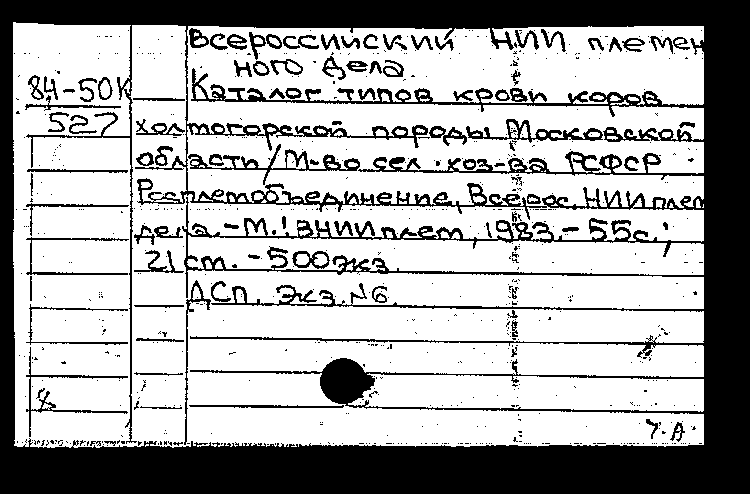 Всероссийский НИИ племен
ного дела
84-50К
527
Каталог типов крови коров
холмогорской породы Московской
области/М-во сел. хоз-ва РСФСР,
Росплемобъединение, Всерос. НИИ плем
дела. - М.: ВНИИплем, 1983. - 55с.;
21 см. - 500экз.
ДСП. Экз. №6.